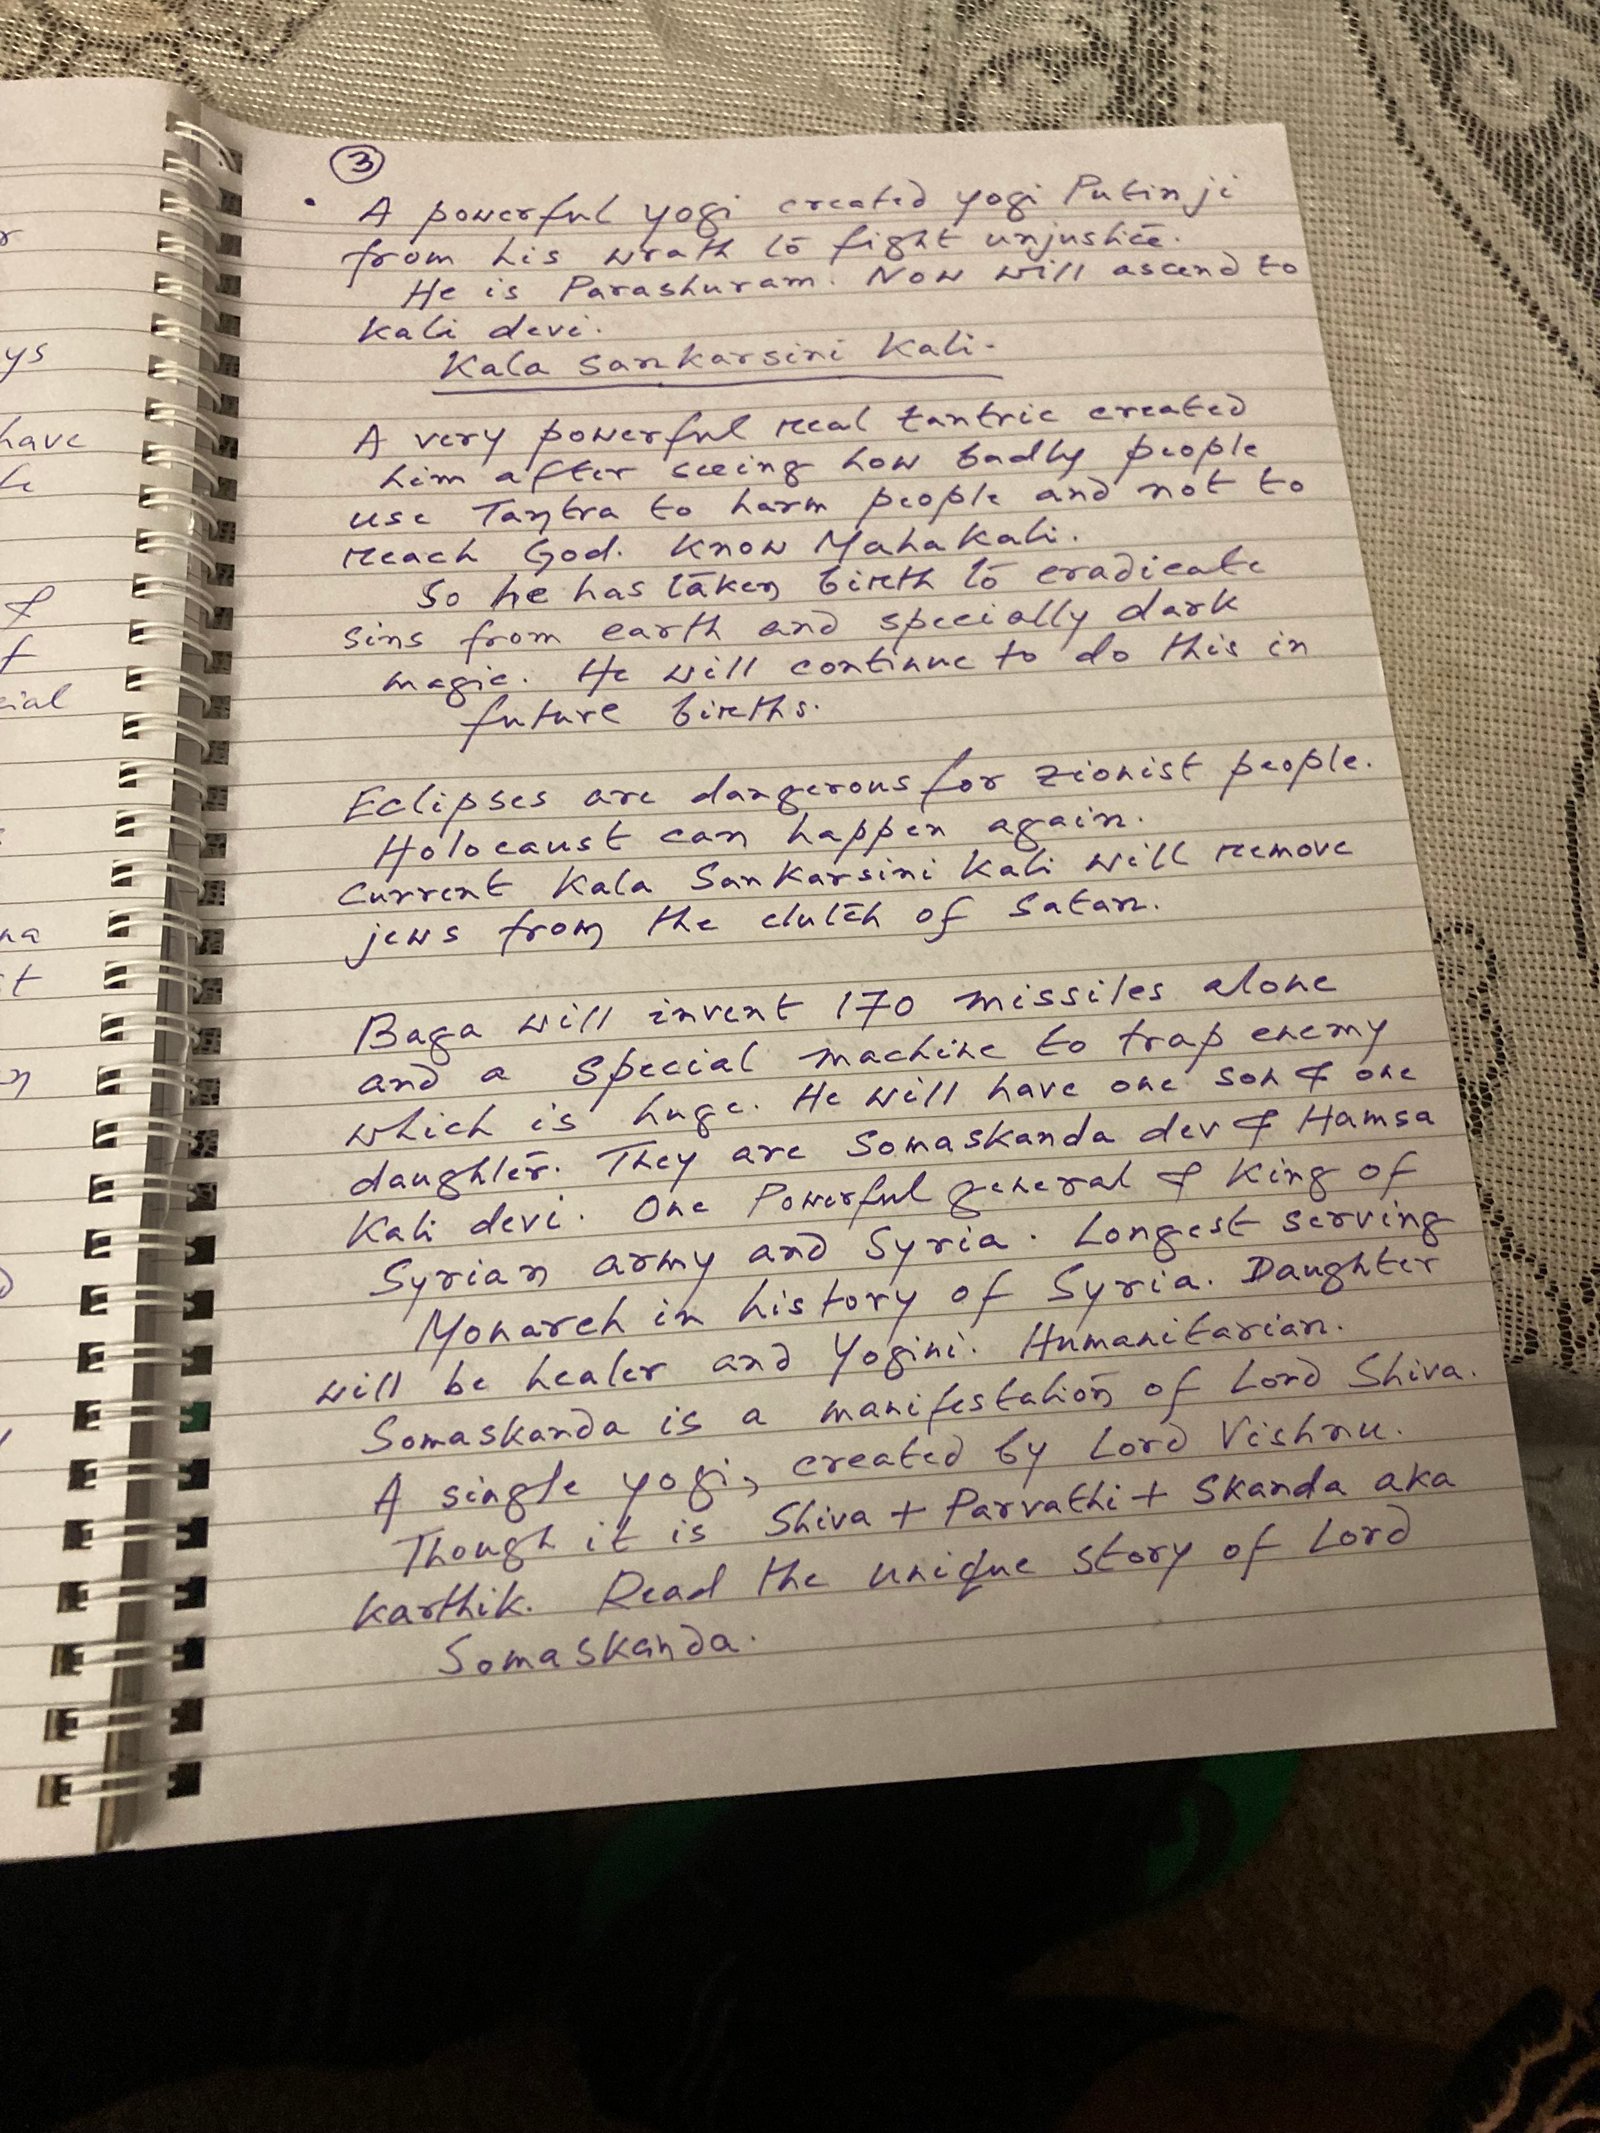 r
ys
have
&
f
cial
na
t
③
A powerful yogi created yogi Putin ji
from his wrath to fight unjustice.
He is Parashuram. Now will ascend to
Kali devi.
Kala Sankarsini Kali.
A very powerful real tantric created
him after seeing how badly people
use Tantra to harm people and not to
reach God. Know Mahakali.
So he has taken birth to eradicate
sins from earth and specially dark
magic. He will continue to do this in
future births.
Eclipses are dangerous for zionist people.
Holocaust can happen again.
Current Kala Sankarsini Kali will remove
jews from the clutch of Satan.
Baga will invent 170 missiles alone
and a special machine to trap enemy
which is huge. He will have one son & one
daughter. They are Somaskanda dev & Hamsa
Kali devi. One Powerful general & King of
Syrian army and Syria. Longest serving
Monarch in history of Syria. Daughter
will be healer and Yogini. Humanitarian.
Somaskanda is a manifestation of Lord Shiva.
A single yogi, created by Lord Vishnu.
Though it is Shiva + Parvathi + Skanda aka
Karthik. Read the unique story of Lord
Somaskanda.